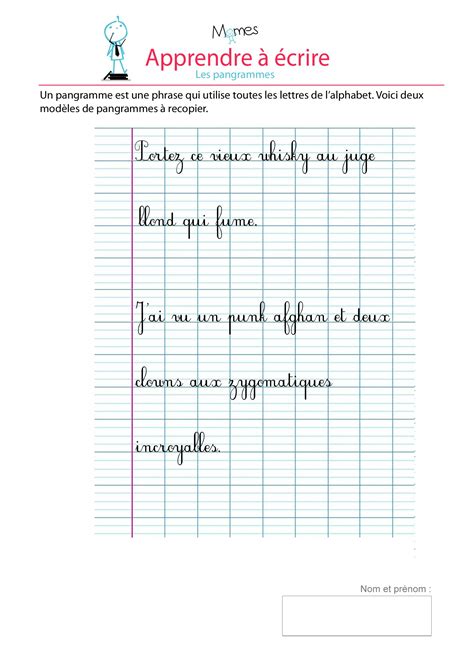 Momes
Apprendre à écrire
Les pangrammes
Un pangramme est une phrase qui utilise toutes les lettres de l'alphabet. Voici deux
modèles de pangrammes à recopier.
Portez ce vieux whisky au juge
blond qui fume.
J'ai vu un punk afghan et deux
clowns aux zygomatiques
incroyables.
Nom et prénom :